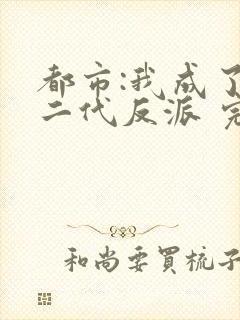 都市:我成了
二代反派 完
和尚要買梳子